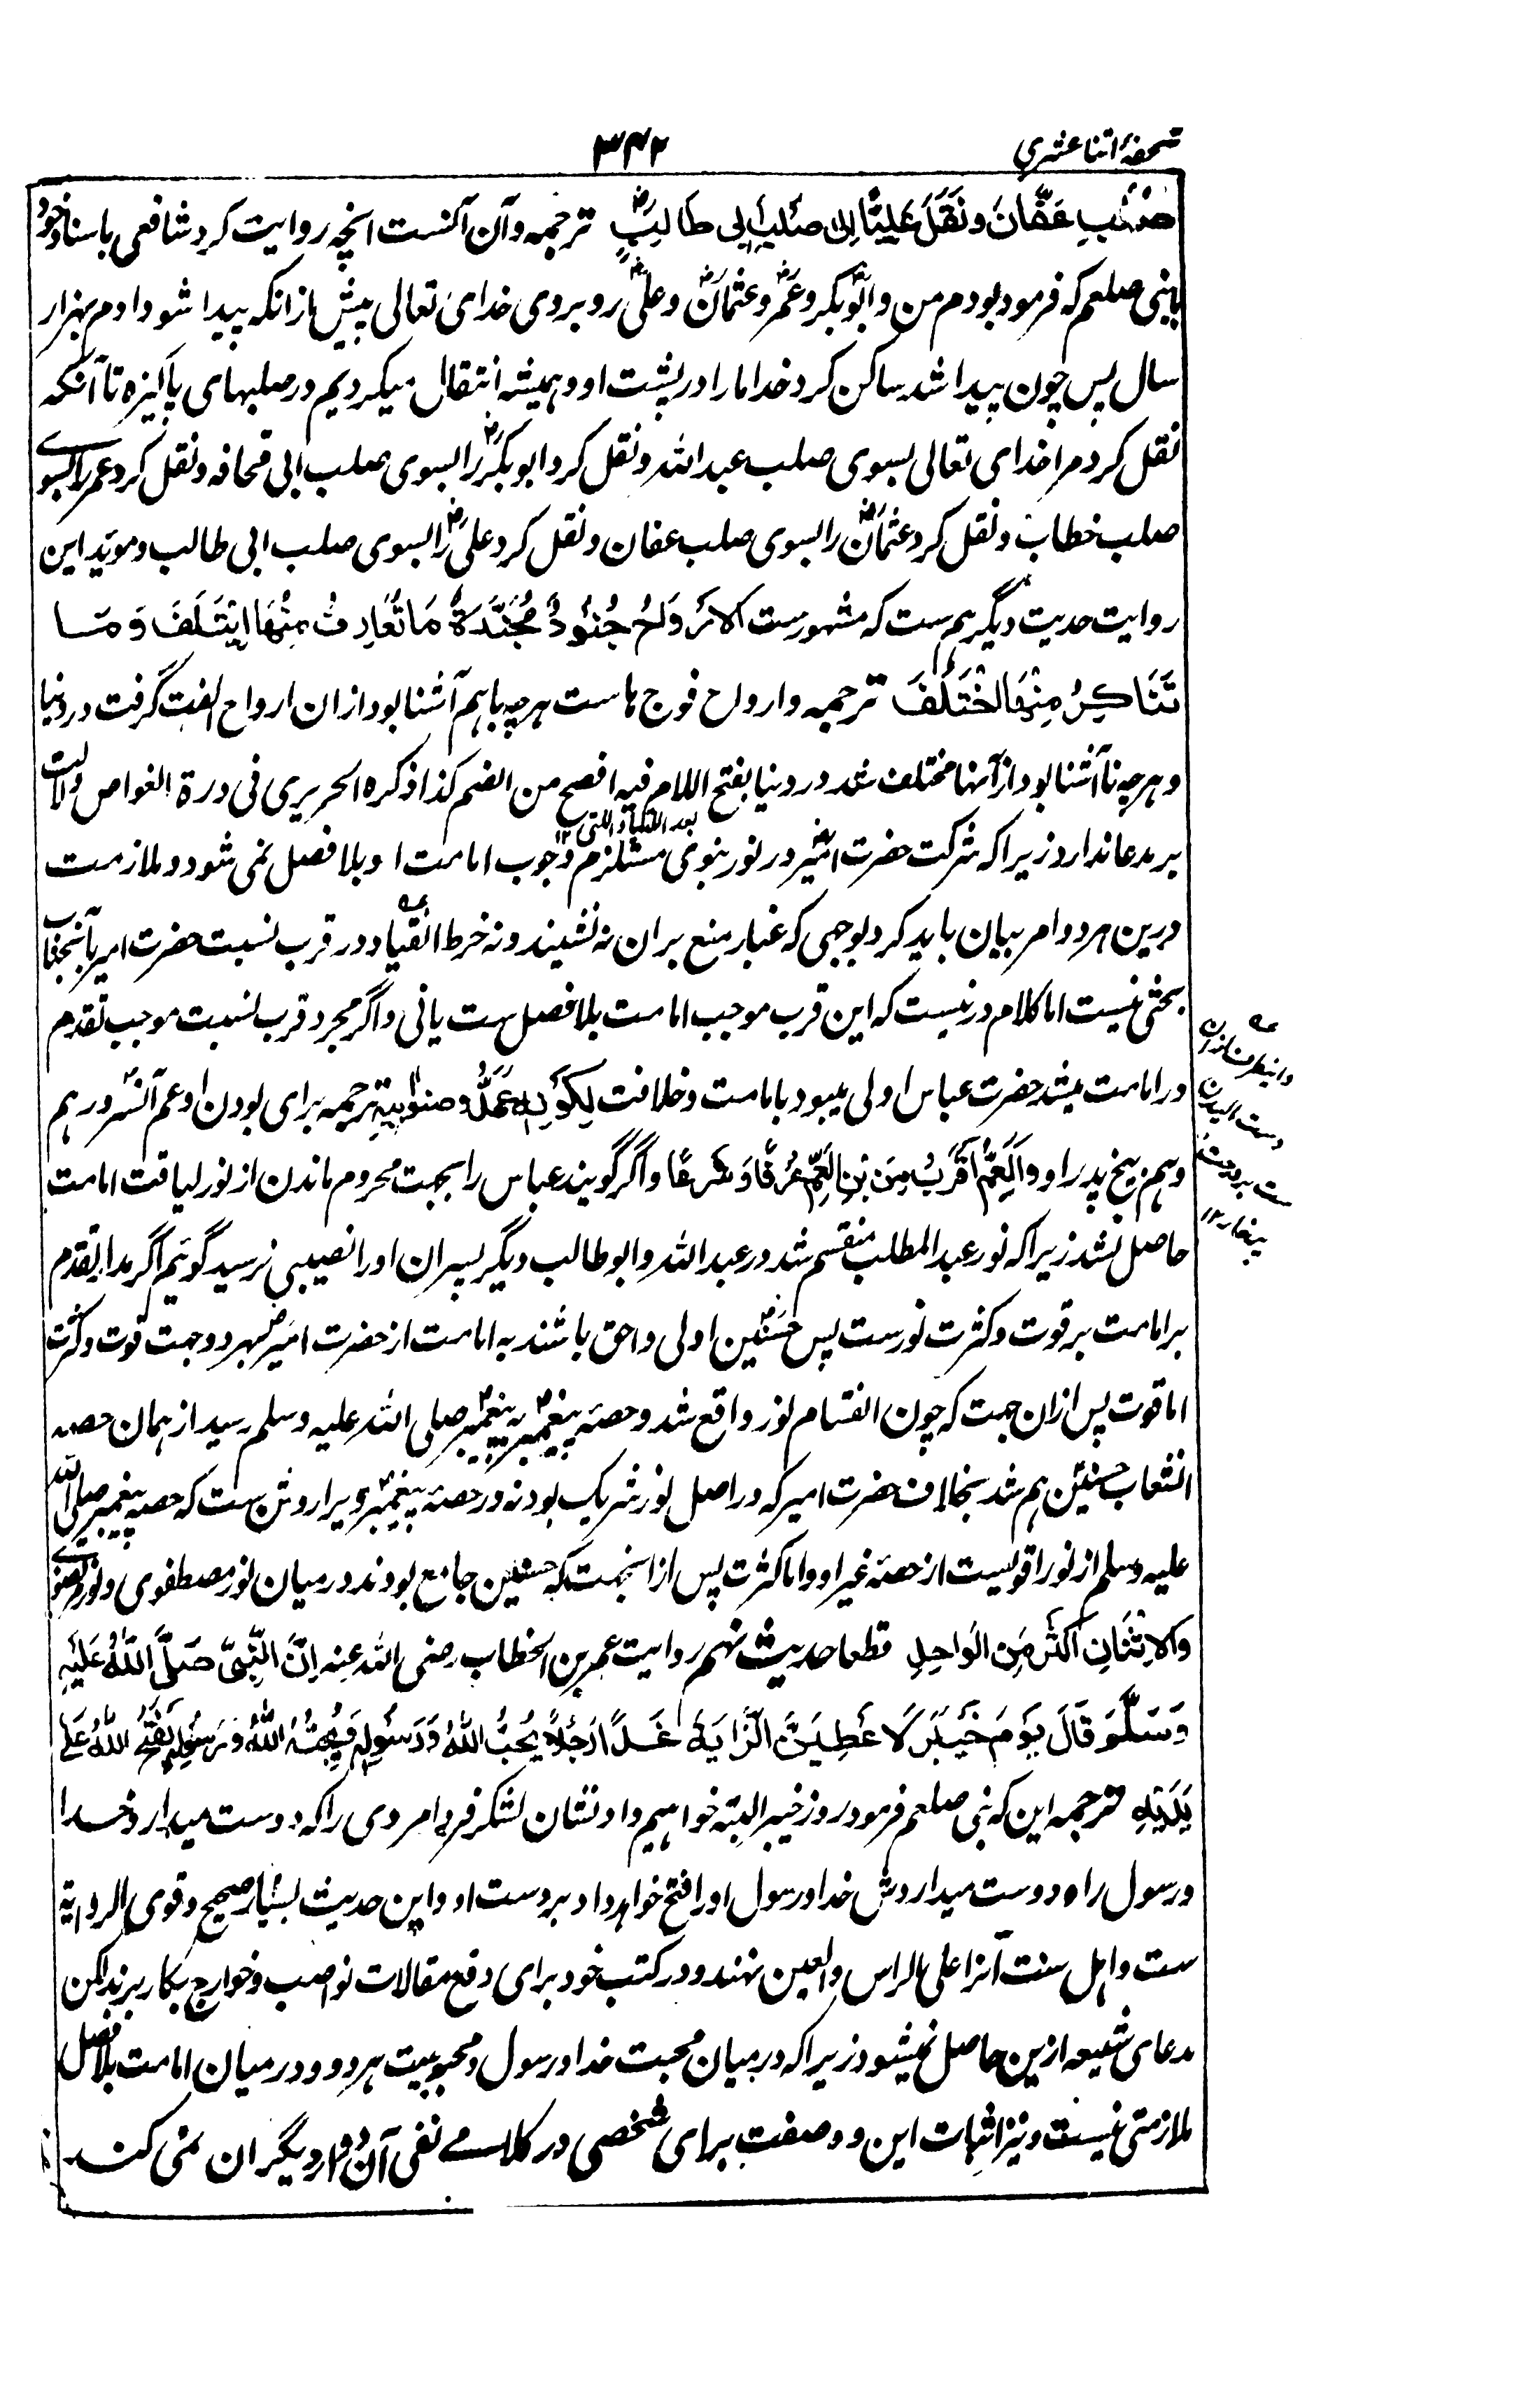 تحفهٔ اثنا عشری
۳۴۲
صُلبِ عَفَّانَ وَنَقَلَ عَلِيًّا اِلٰى صُلبِ اَبِى طَالِبٍ ترجمه و آن آنست انچه روایت کرد شافعی باسناد خود
یا بنی صلعم که فرمود بودم من و ابوبکر و عمر و عثمان و علی روبروی خدای تعالی پیش ازانکه پیدا شود ادم بهزار
سال پس چون پیدا شد ساکن کرد خدا ما را در پشت او و همیشه انتقال میکردیم در صلبهای پاکیزه تا آنکه
نقل کرد مرا خدای تعالی بسوی صلب عبد الله و نقل کرد ابوبکر را بسوی صلب ابی قحافه و نقل کرد عمر را بسوے
صلب خطاب و نقل کرد عثمان را بسوی صلب عفان و نقل کرد علی را بسوی صلب ابی طالب و موید این
روایت حدیث دیگر هم ست که مشهورست اَلاَرْوَاحُ جُنُوْدٌ مُجَنَّدَةٌ مَا تَعَارَفَ مِنْهَا اِئْتَلَفَ وَ مَا
تَنَاكَرَ مِنْهَا اخْتَلَفَ ترجمه و ارواح فوج ها ست هر چه باهم آشنا بود ازان ارواح الفت گرفت در دنیا
و هر چه نا آشنا بود از آنها مختلف شد در دنیا بفتح اللام فیه افصح من الضم کذا ذکره الحریری فی درة الغواص دلالت
بعد اللتیا و اللتی ۱۲
بر مدعا ندارد زیرا که شرکت حضرت امیر در نور نبوی مستلزم وجوب امامت او بلا فصل نمی شود و ملازمت
درین هر دو امر بیان باید کرد بوجهی که غبار منع بران نه نشیند و نه خرط القتاد و در قرب نسبت حضرت امیر بآنجناب
بحثی نیست اما کلام درینست که این قرب موجب امامت بلا فصل هست یا نی و اگر مجرد قرب نسبت موجب تقدم
در امامت میشد حضرت عباس اولی میبود بامامت و خلافت لِكَوْنِهِ عَمَّهُ وَ صِنْوَ اَبِيْهِ ترجمه برای بودن او عم آنسرور هم
و هم بیخ پدر او و اَلْعَمُّ اَقْرَبُ مِنَ ابْنِ الْعَمِّ عُرْفًا وَ شَرْعًا و اگر گویند عباس را بجهت محروم ماندن از نور لیاقت امامت
حاصل نشد زیرا که نور عبد المطلب منقسم شد در عبد الله و ابو طالب دیگر پسران او را نصیبی نرسید گوئیم اگر مدار تقدم
بر امامت بر قوت و کثرت نورست پس حسنین اولی و احق باشند به امامت از حضرت امیر بهر دو جهت قوت و کثرت
اما قوت پس ازان جهت که چون انقسام نور واقع شد و حصهٔ پیغمبر به پیغمبر صلی الله علیه وسلم رسید از همان حصه
انشعاب حسنین هم شد بخلاف حضرت امیر که در اصل نور شریک بود نه در حصهٔ پیغمبر و پر روشن ست که حصه پیغمبر صلی الله
علیه وسلم از نور اقویست از حصهٔ غیر او و اما کثرت پس ازانجهت که حسنین جامع بودند در میان نور مصطفوی و نور مرتضوے
وَالاِثْنَانِ اَكْثَرُ مِنَ الْوَاحِدِ قطعا حدیث نهم روایت عمر بن الخطاب رضی الله عنه اِنَّ النَّبِىَّ صَلَّى اللّٰهُ عَلَيْهِ
وَسَلَّمَ قَالَ يَوْمَ خَيْبَرَ لَاُعْطِيَنَّ الرَّايَةَ غَدًا رَجُلًا يُحِبُّ اللّٰهَ وَ رَسُوْلَهُ وَ يُحِبُّهُ اللّٰهُ وَ رَسُوْلُهُ يَفْتَحُ اللّٰهُ عَلٰى
يَدَيْهِ ترجمه این که نبی صلعم فرمود روز خیبر البته خواهیم داد نشان لشکر فردا مردی را که دوست میدارد خدا
و رسول را و دوست میداردش خدا و رسول او را فتح خواهد داد بر دست او و این حدیث بسیار صحیح و قوی الروایة
ست و اهل سنت آنرا علی الراس و العین نهند و در کتب خود برای دفع مقالات نواصب و خوارج بکار برند لکن
مدعای شیعه ازین حاصل نمیشود زیرا که در میان محبت خدا و رسول و محبوبیت هر دو و در میان امامت بلا فصل
ملازمتی نیست و نیز اثبات این دو صفت برای شخصی در کلامے نفی آن دو از دیگران نمی کند